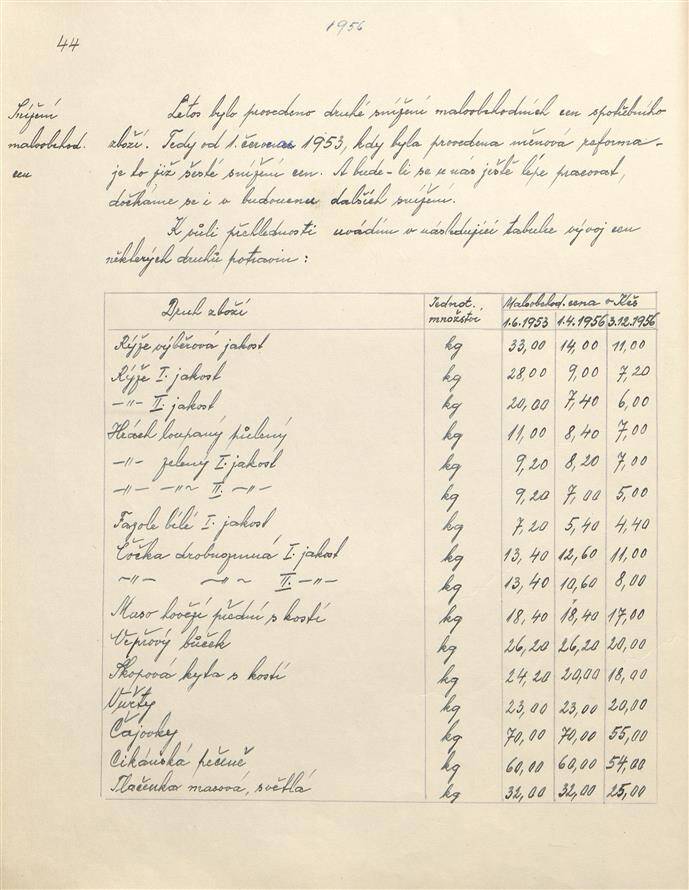 1956
44
Snížení
maloobchod.
cen
Letos bylo provedeno druhé snížení maloobchodních cen spotřebního
zboží. Tedy od 1. červenec 1953, kdy byla provedena měnová reforma -
je to již šesté snížení cen. A bude-li se u nás ještě lépe pracovat,
dočkáme se i v budoucnu dalších snížení.
K vůli přehlednosti uvádím v následující tabulce vývoj cen
některých druhů potravin :
Druh zboží Jednot. množství Maloobchod. cena v Kčs
1.6.1953 1.4.1956 3.12.1956
Rýže výběrová jakost kg 33,00 14,00 11,00
Rýže I. jakost kg 28,00 9,00 7,20
-"- II. jakost kg 20,00 7,40 6,00
Hrách loupaný půlený kg 11,00 8,40 7,00
-"- zelený I. jakost kg 9,20 8,20 7,00
-"- -"- II. -"- kg 9,20 7,00 5,00
Fazole bílé I. jakost kg 7,20 5,40 4,40
Čočka drobnozrnná I. jakost kg 13,40 12,60 11,00
-"- -"- II. -"- kg 13,40 10,60 8,00
Maso hovězí přední s kostí kg 18,40 18,40 17,00
Vepřový bůček kg 26,20 26,20 20,00
Skopová kýta s kostí kg 24,20 20,00 18,00
Vuřty kg 23,00 23,00 20,00
Čajovky kg 70,00 70,00 55,00
Cikánská pečeně kg 60,00 60,00 54,00
Tlačenka masová, světlá kg 32,00 32,00 25,00